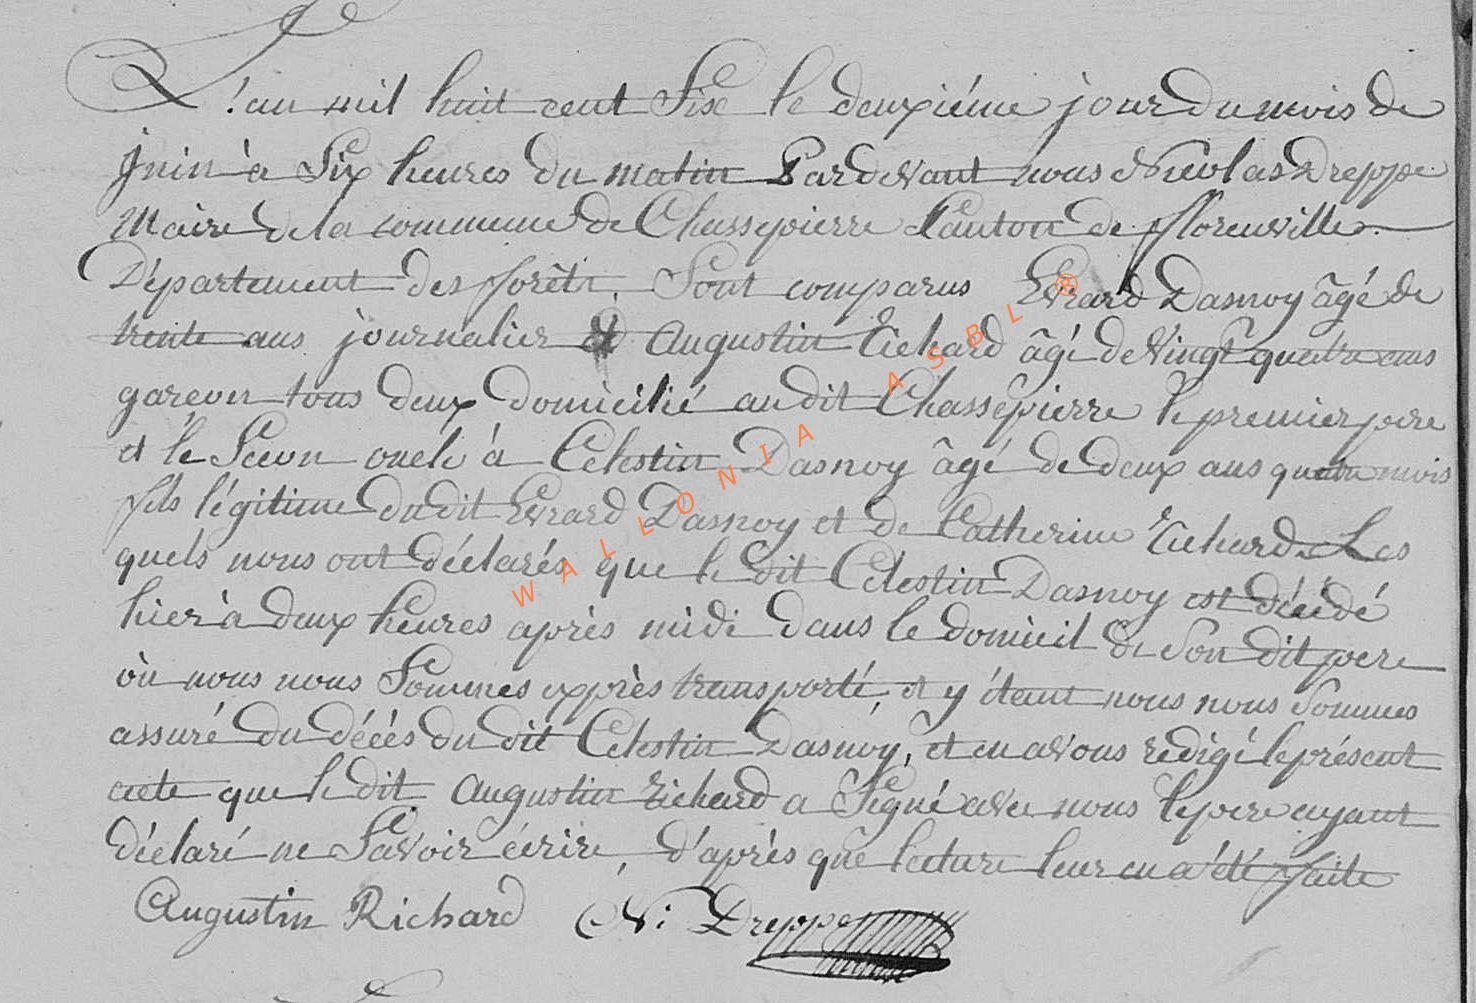 L'an mil huit cent Six le deuxiéme jour du mois de
juin à Six heures du matin Pardevant nous Nicolas Dreppe
Maire de la commune de Chassepierre Canton de fflorenville
Département des fforêts, Sont comparus Evrard Dasnoy âgé de
trente ans journalier et Augustin Richard âgé de Vingt quatre ans
gareon tous deux domicilié au dit Chassepierre le premier pere
et le Secon oncle à Célestin Dasnoy âgé de deux ans quatre mois
fils légitime du dit Evrard Dasnoy et de Catherine Richard Les
quels nous ont déclarés que le dit Célestin Dasnoy est décédé
hier à deux heures après midi dans le domicil de Son dit pere
où nous nous Sommes epprès transporté, et y étant nous nous Sommes
assuré du décès du dit Celestin Dasnoy, et en avons redigé le présent
acte que le dit Augustin Richard a Signé avec nous le pere ayant
déclaré ne Savoir écrire, d'après que lecture leur en a été ffaite
Augustin Richard N: Dreppe
WALLONIA ASBL ®